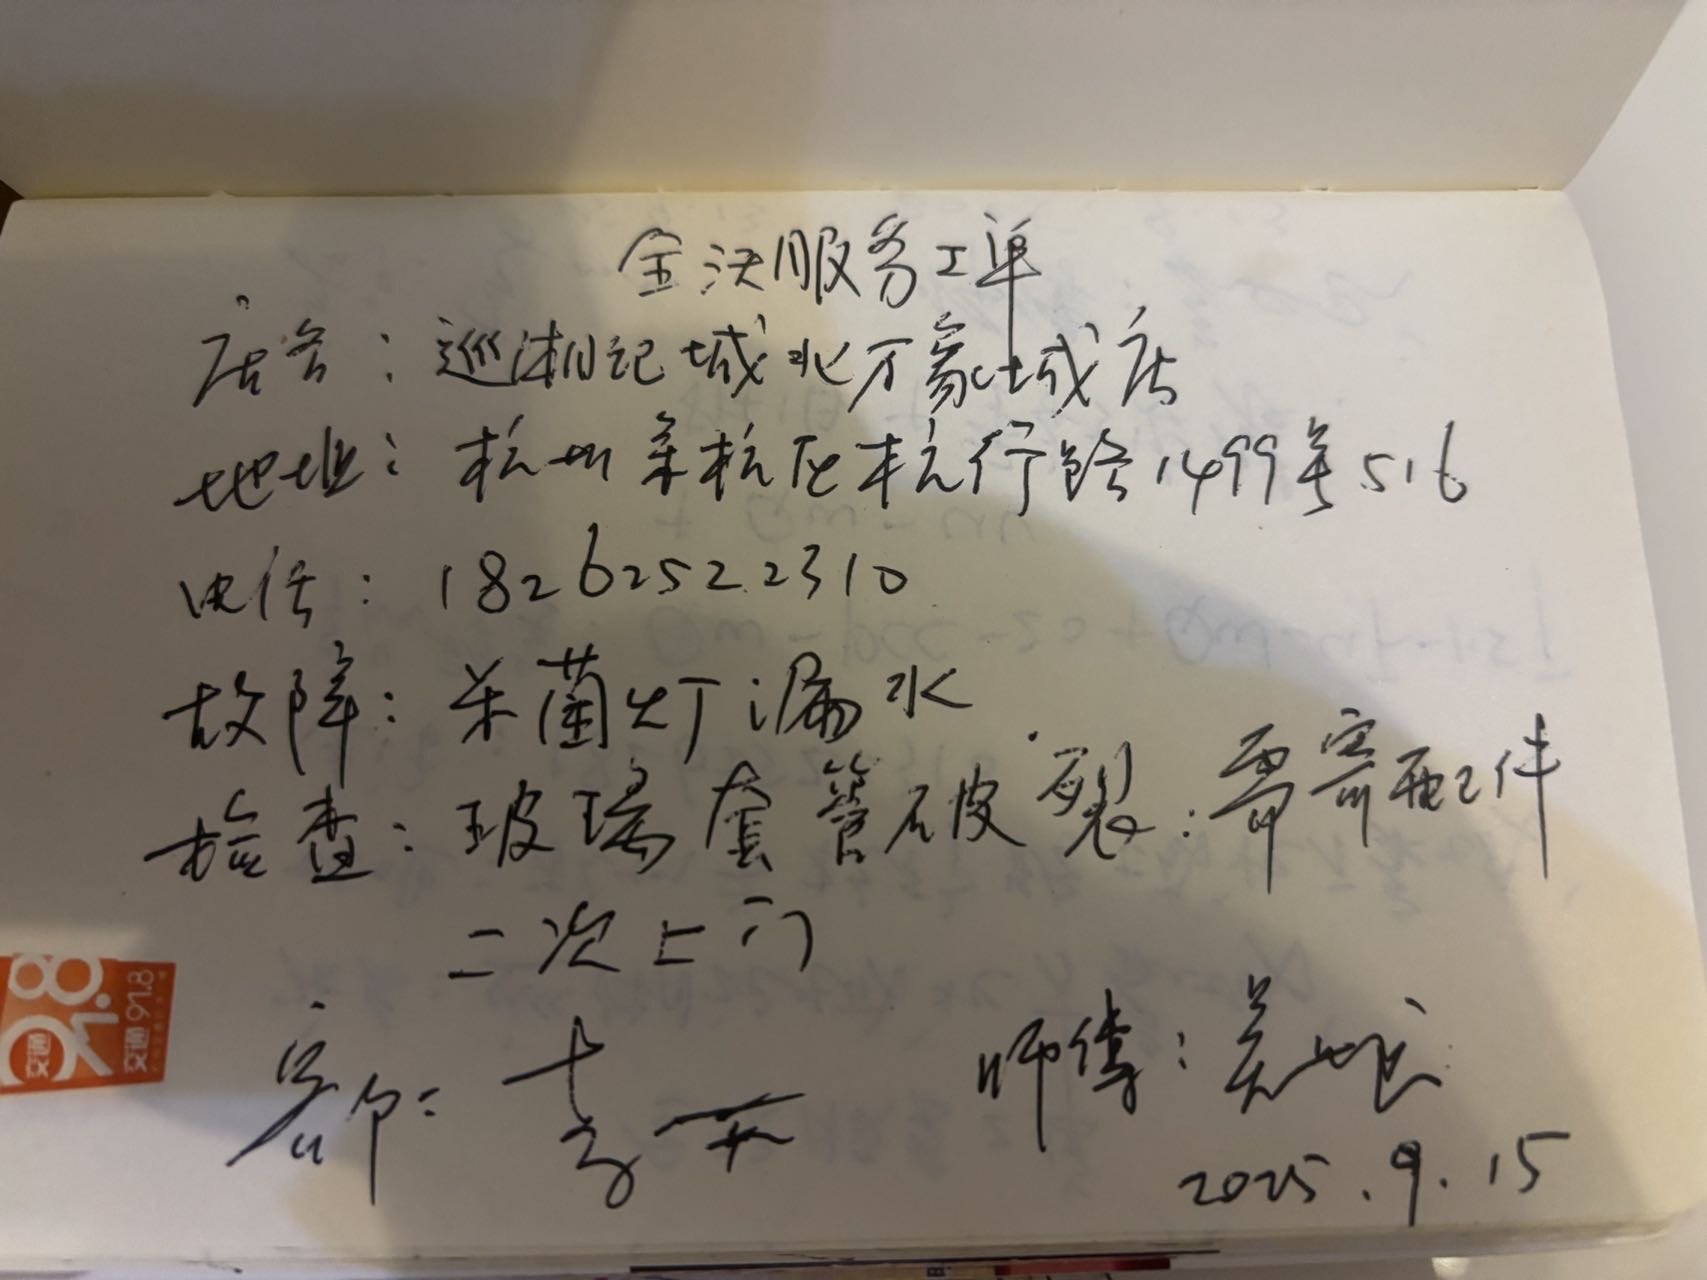 全沃服务工单
店名：巡湘记城北万象城店
地址：杭州余杭区杭行路1499号516
电话：18262522310
故障：杀菌灯漏水
检查：玻璃套管破裂：需寄配件
二次上门
客户：
师傅：
2025.9.15